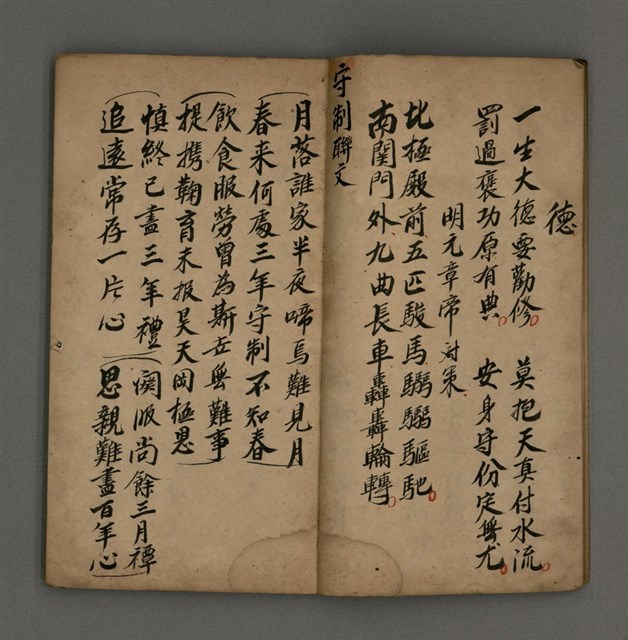 德
一生大德要勸修 莫把天真付水流
罰過褒功原有典 安身守份定無尤
明元章帝對策
北極殿前五匹駿馬驅馳
南關門外九曲長車轟轟輪轉
守制聯文
月落誰家半夜啼烏難見月
春來何處三年守制不知春
飲食服勞曾為斯世無難事
提攜鞠育未报昊天罔極恩
慎終已盡三年禮 闋服尚餘三月禫
追遠常存一片心 思親難盡百年心